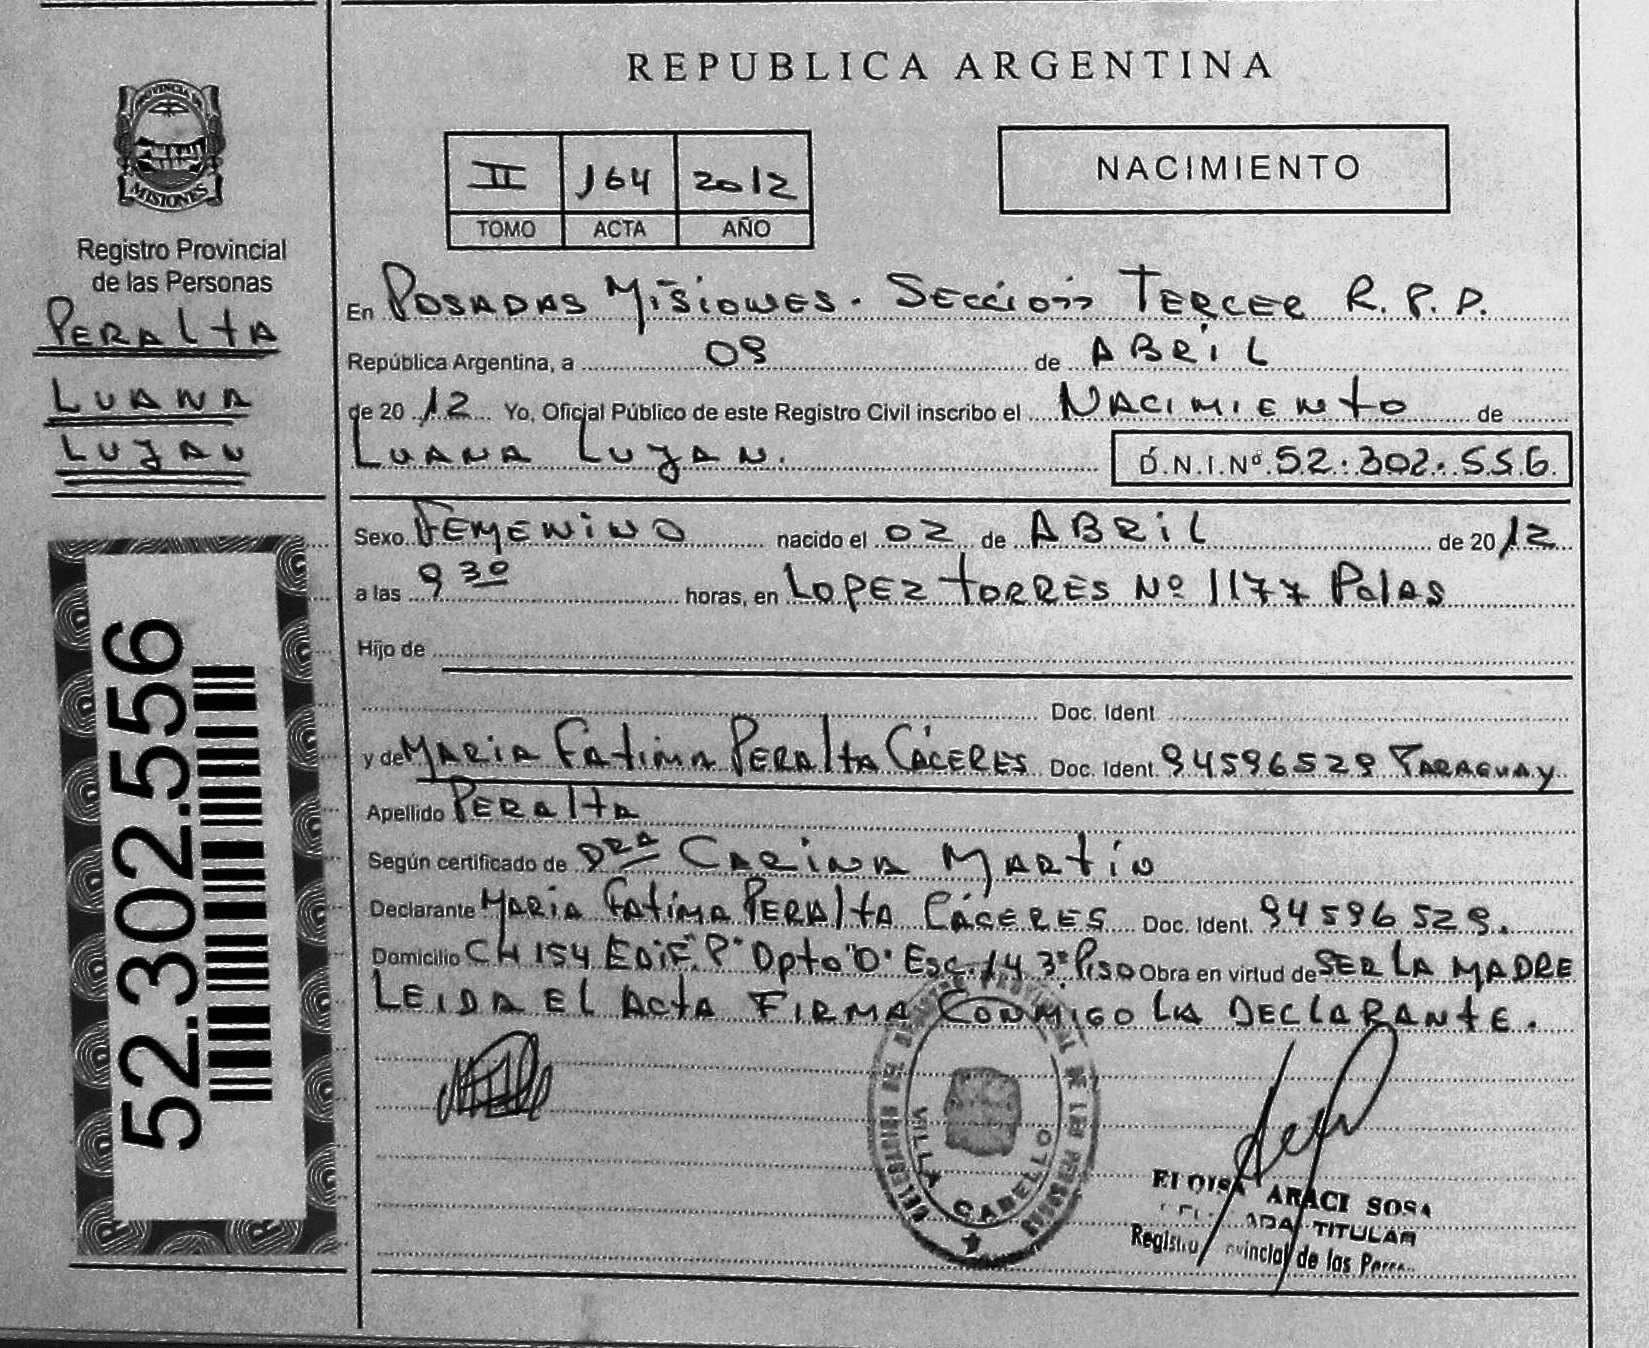 REPUBLICA ARGENTINA
PROVINCIA DE
MISIONES
Registro Provincial
de las Personas
PERALTA
LUANA
LUJAN
II 164 2012
TOMO ACTA AÑO
NACIMIENTO
En POSADAS MISIONES. SECCION TERCER R.P.P.
República Argentina, a 09 de ABRIL
de 2012 Yo, Oficial Público de este Registro Civil inscribo el NACIMIENTO de
LUANA LUJAN. D.N.I.Nº 52.302.556
Sexo FEMENINO nacido el 02 de ABRIL de 2012
a las 9 30 horas, en LOPEZ TORRES Nº 1177 Pdas
Hijo de
Doc. Ident
y de MARIA FATIMA PERALTA CÁCERES Doc. Ident. 94596529 PARAGUAY
Apellido PERALTA
Según certificado de DRA CARINA MARTIN
Declarante MARIA FATIMA PERALTA CÁCERES Doc. Ident. 94596529.
Domicilio CH 154 EDIF. P" Dpto "D" Esc. 14 3º PISO Obra en virtud de SER LA MADRE
LEIDA EL ACTA FIRMA CONMIGO LA DECLARANTE.
52.302.556
VILLA CABELLO
ELOISA ARACI SOSA
TITULAR
Registro Provincial de las